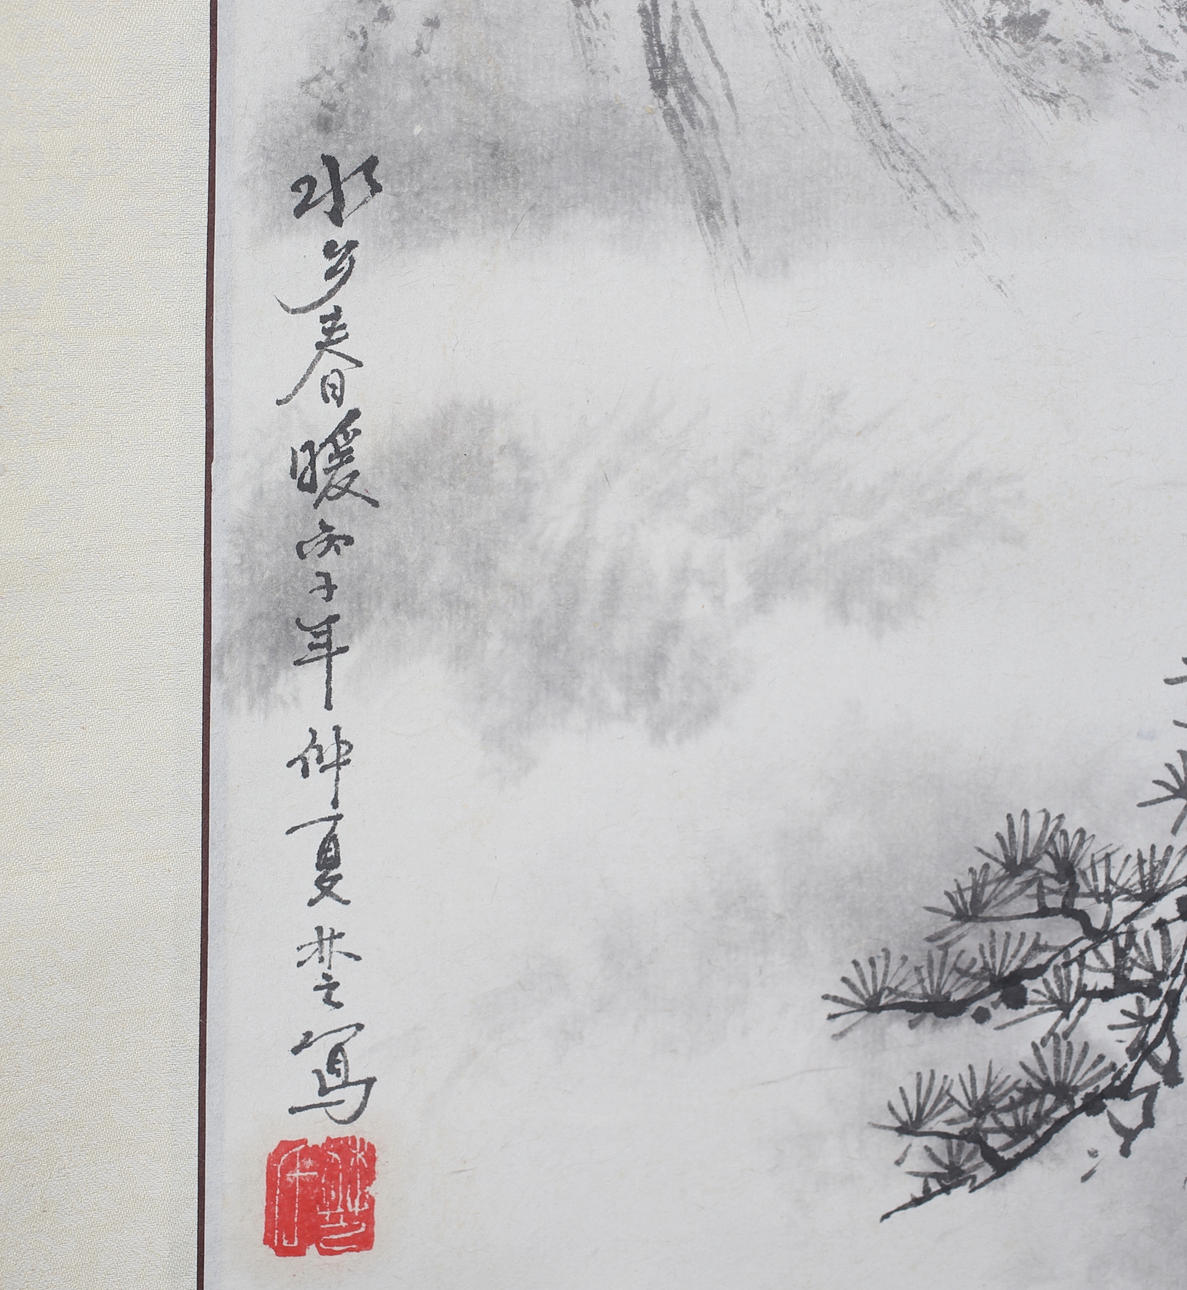 水乡春暖丙子年仲夏楚写